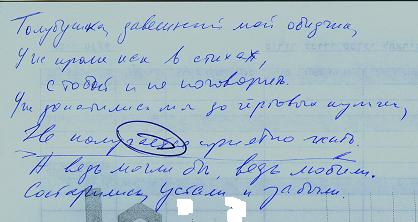 Голубушка, давешний мой обидчик,
Уж кроме как в стихах,
с тобой и не поговорить.
Уж докатились мы до чёртовых куличек,
Не получается приятно жить.
А ведь могли бы, ведь любили.
Состарились, устали и забыли.